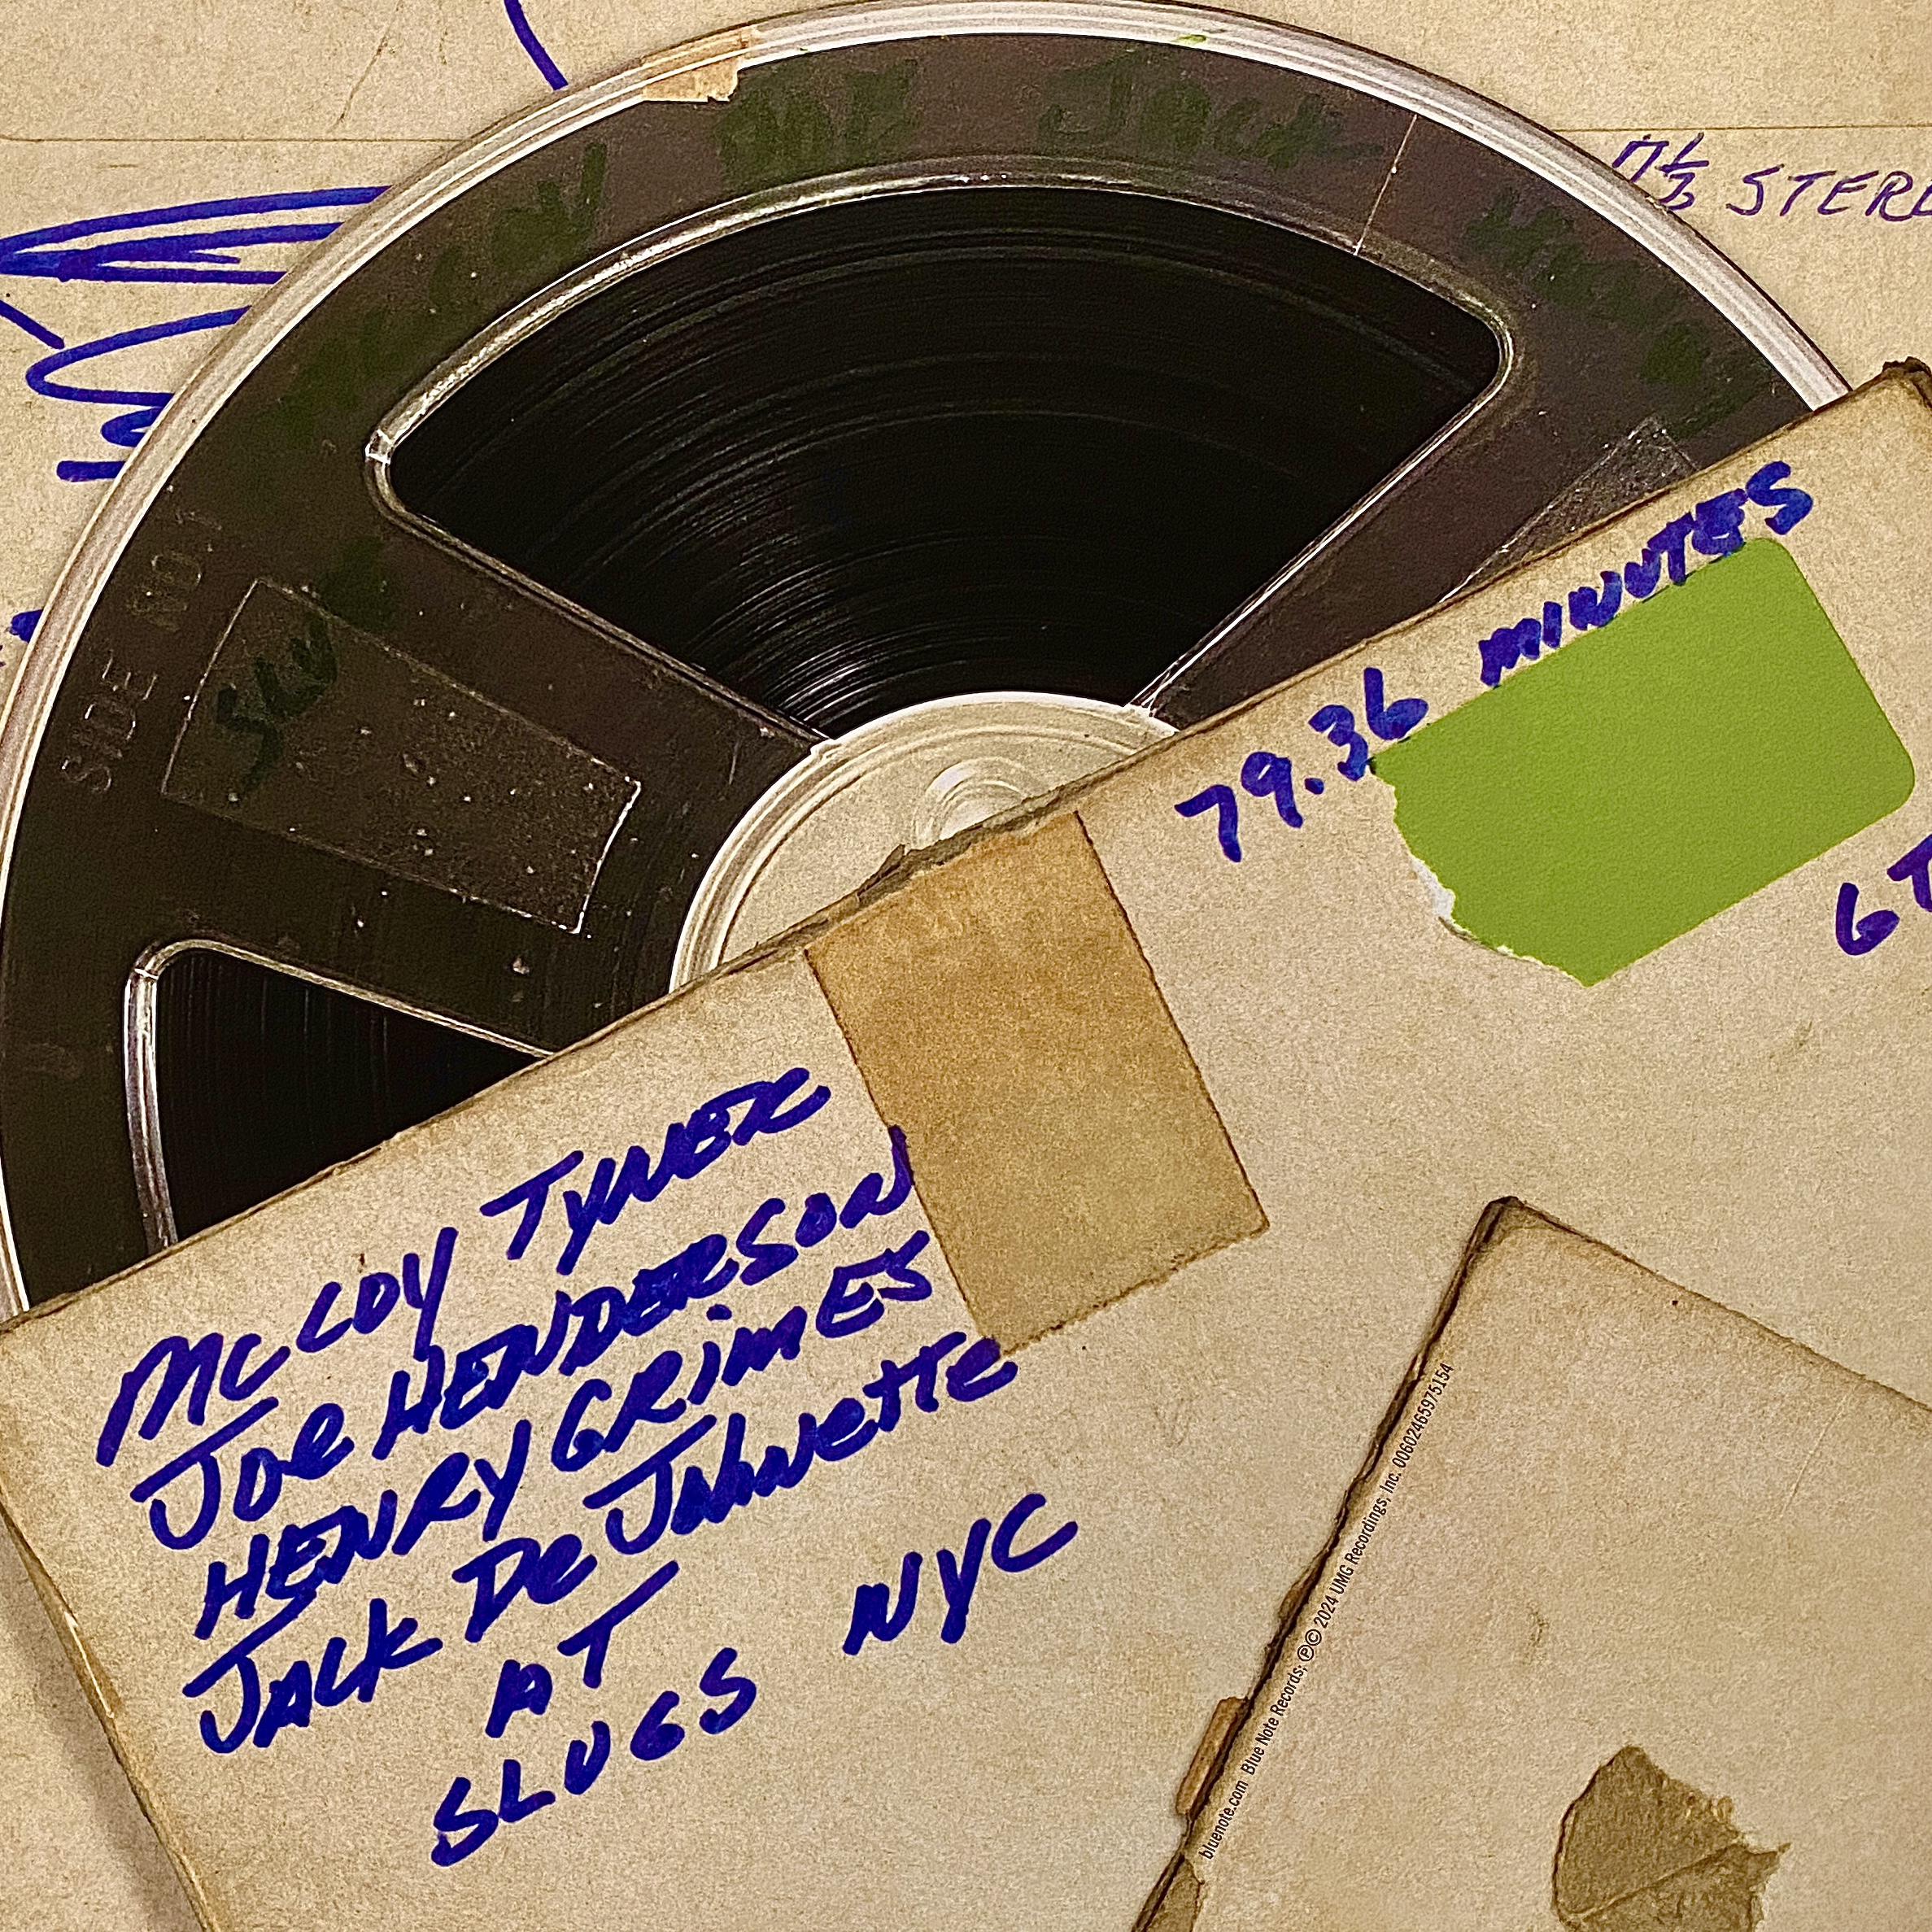 7½ STERE
SIDE NO 1
79.36 MINUTES
6 T
McCOY TYNER
JOe HENDERSON
HENRY GRIMES
JACK De JohNeTTe
AT
SLUGS NYC
bluenote.com Blue Note Records; ℗© 2024 UMG Recordings, Inc. 00602465975154